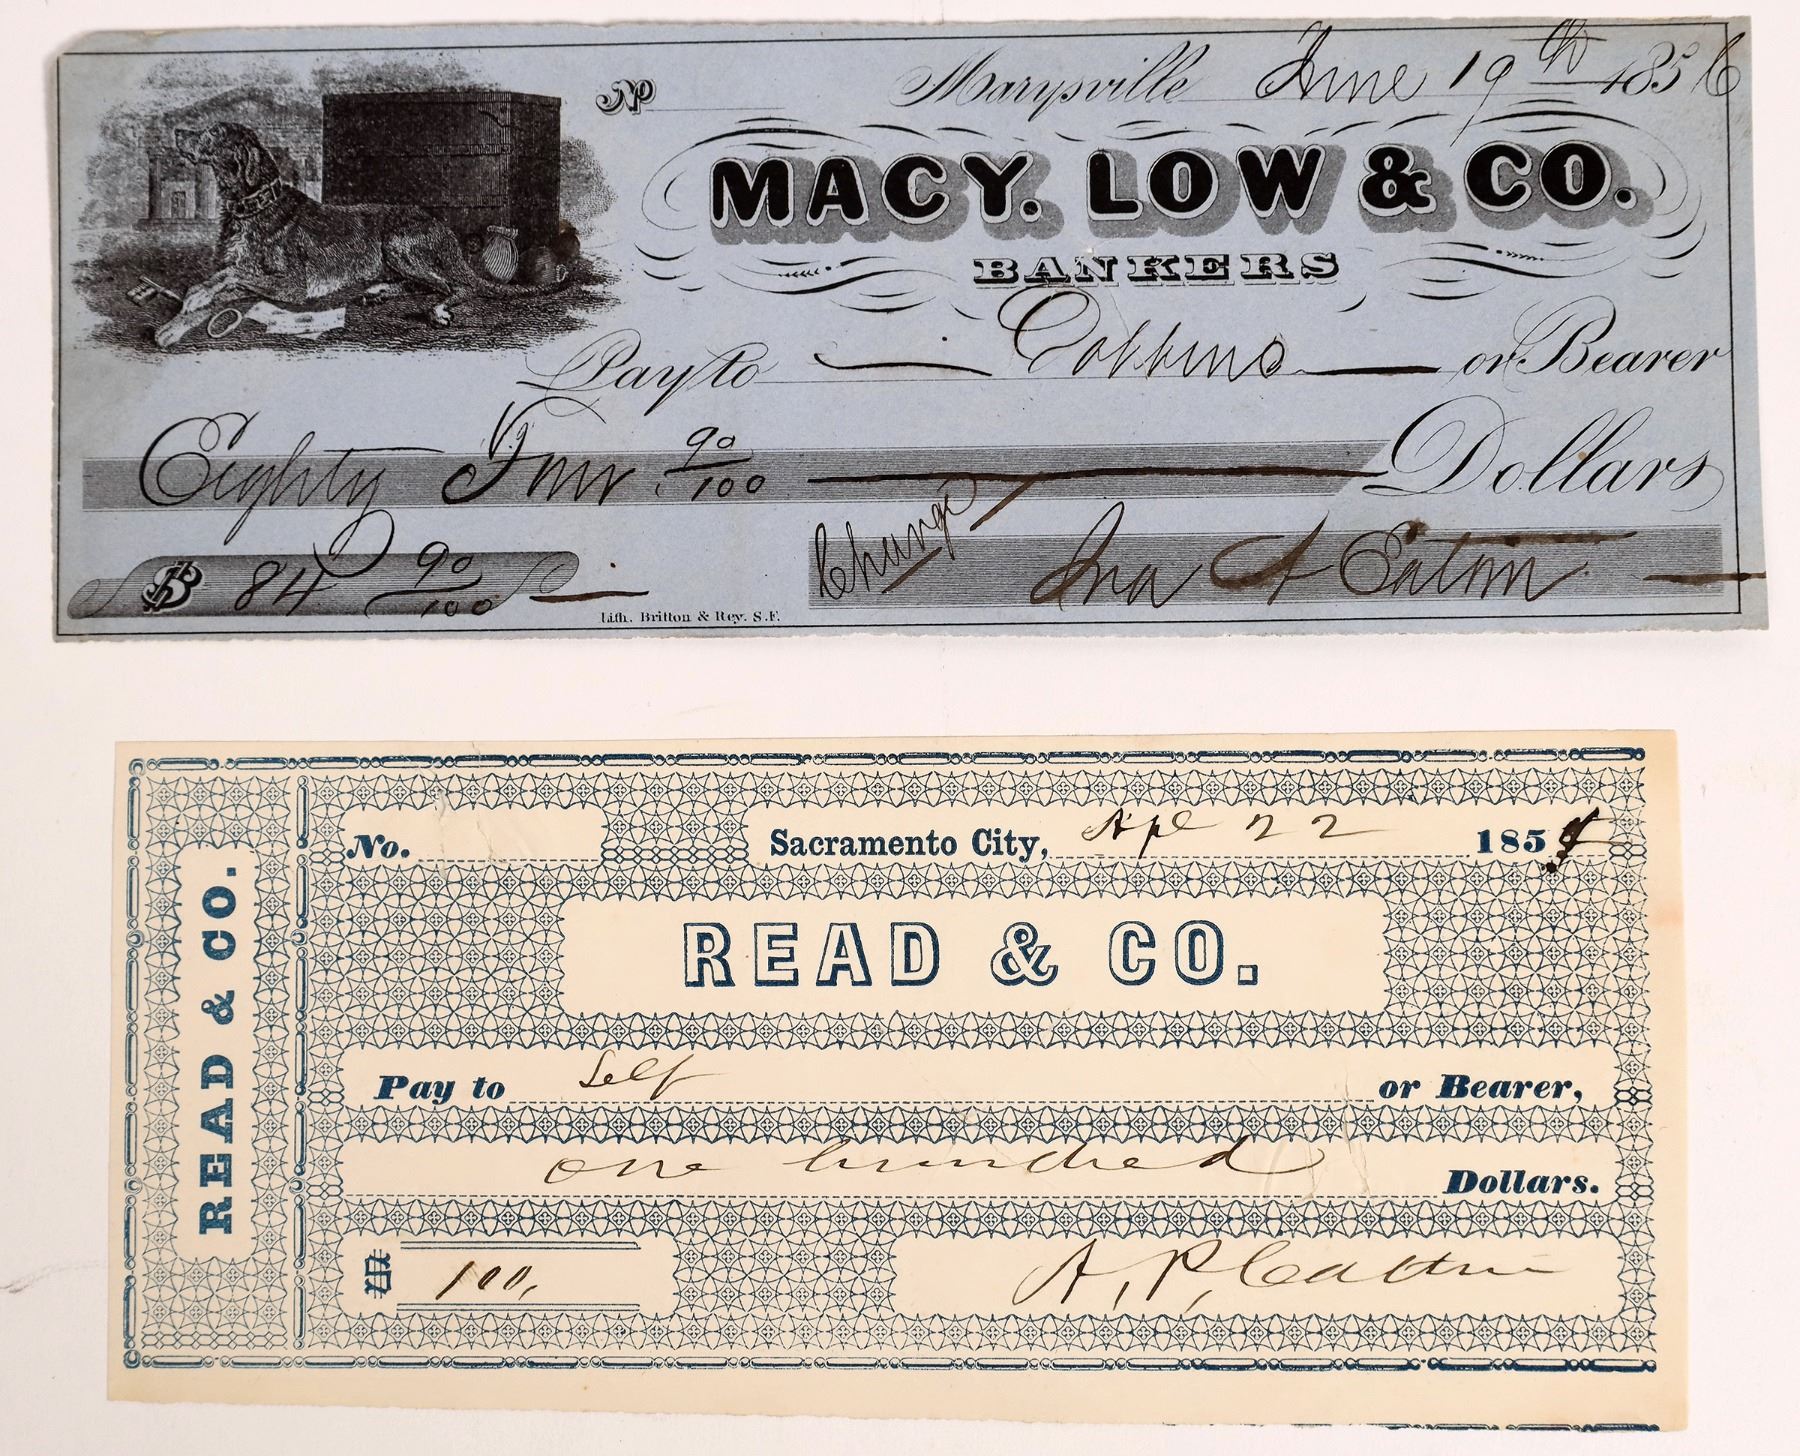 No Marysville June 19th 1856
MACY. LOW & CO.
BANKERS
Pay to Cobbins or Bearer
Eighty Four 90/100 Dollars
$ 84 90/100
Ira A Eaton
Lith. Britton & Rey. S.F.
READ & CO.
No. Sacramento City, Apl 22 1854
READ & CO.
Pay to Self or Bearer,
one hundred Dollars.
$ 100.
A, P,